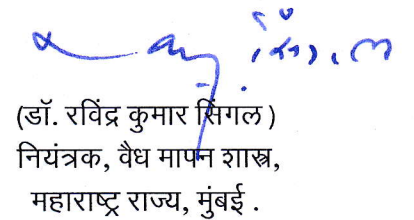 (डॉ. रविंद्र कुमार सिंगल )
नियंत्रक, वैध मापन शास्त्र,
महाराष्ट्र राज्य, मुंबई .